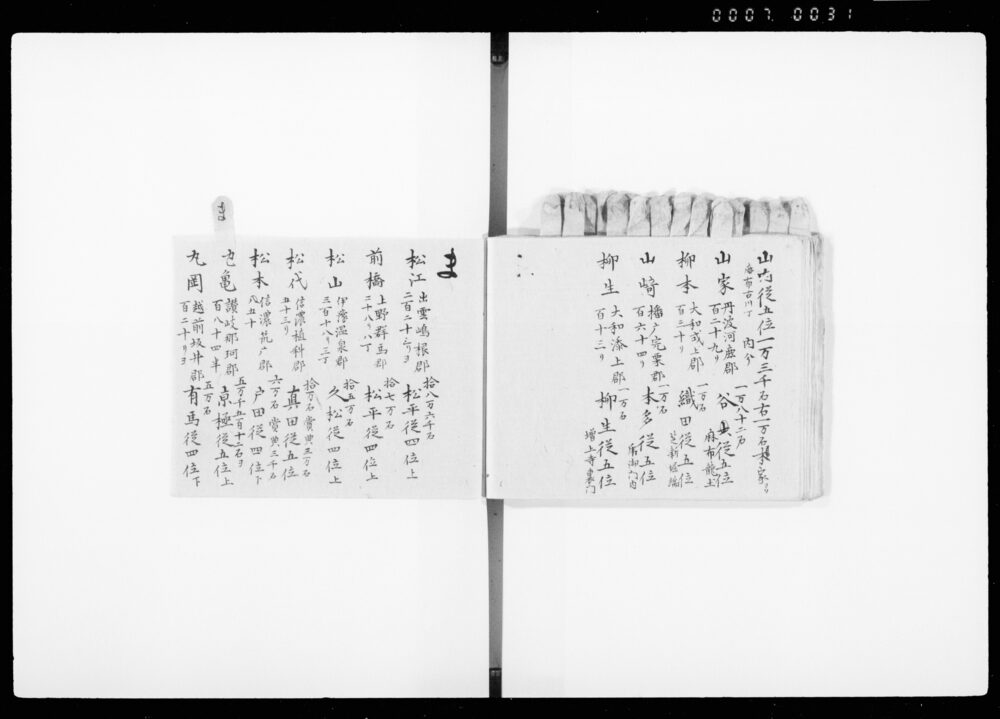 0007 0031
山内従五位一万三千石右一万石越家ゟ
麻布古川丁 内分
一万八十二石
山家 丹波河鹿郡 谷 従五位
百二十九り 麻布龍土
一万石
柳本 大和式上郡 織田従五位
百三十り 芝新堀端
一万石
山崎 播户宍栗郡 本多従五位
百六十四り 御門内
一万石
柳生 大和添上郡 柳生従五位
百十三り 増上寺裏門
ま
拾八万六千石
松江 出雲嶋根郡 松平従四位上
二百二十三りヨ
拾七万石
前橋 上野群馬郡 松平従四位上
二十八り八丁
拾五万石
松山 伊豫温泉郡 久松従四位上
三百十八り三丁
拾万石 賞典三万石
松代 信濃植科郡 真田従五位
五十三り
六万石 賞典三千石
松本 信濃筑户郡 戸田従四位下
八五十
五万千五百十二石ヨ
丸亀 讃岐那珂郡 京極従五位上
百八十四半
五万石
丸岡 越前坂井郡 有馬従四位下
百二十りヨ